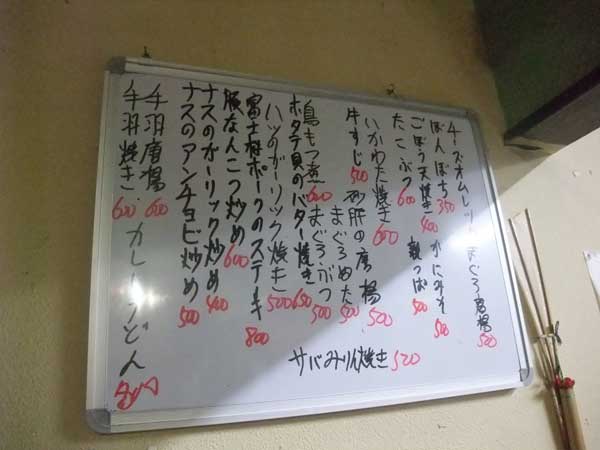 チーズオムレツ まぐろ唐揚 520
ぼんぼち 350 かにみそ 500
ごぼう天焼き 400
たこぶつ 600
いかわた焼き 600
牛すじ 500 砂肝の唐揚 500
まぐろぬた 500
鳥もつ煮 600 まぐろぶつ 500
ホタテ貝のバター焼き 650
ハツのガーリック焼き 500
富士桜ポークのステーキ 800
豚なんこつ炒め 600
ナスのガーリック炒め 400
ナスのアンチョビ炒め 500
手羽唐揚 600 カレーうどん
手羽焼き 600
サバみりん焼き 520